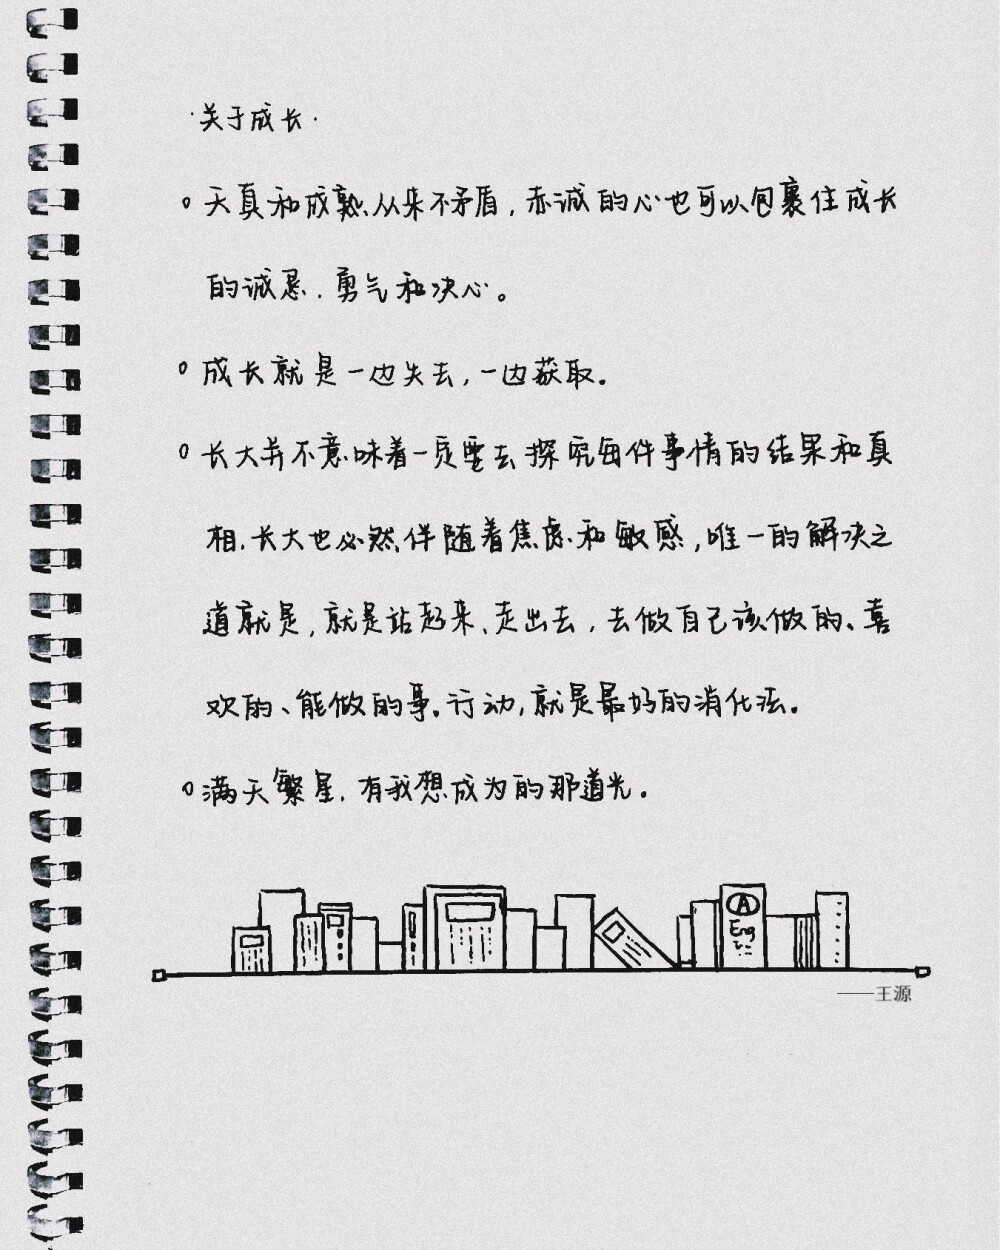 ·关于成长·
。天真和成熟从来不矛盾，赤诚的心也可以包裹住成长
的诚恳.勇气和决心。
。成长就是一边失去，一边获取。
。长大并不意味着一定要去探究每件事情的结果和真
相.长大也必然伴随着焦虑和敏感，唯一的解决之
道就是，就是站起来、走出去，去做自己该做的、喜
欢的、能做的事。行动，就是最好的消化法。
。满天繁星.有我想成为的那道光。
A
Eng
——王源